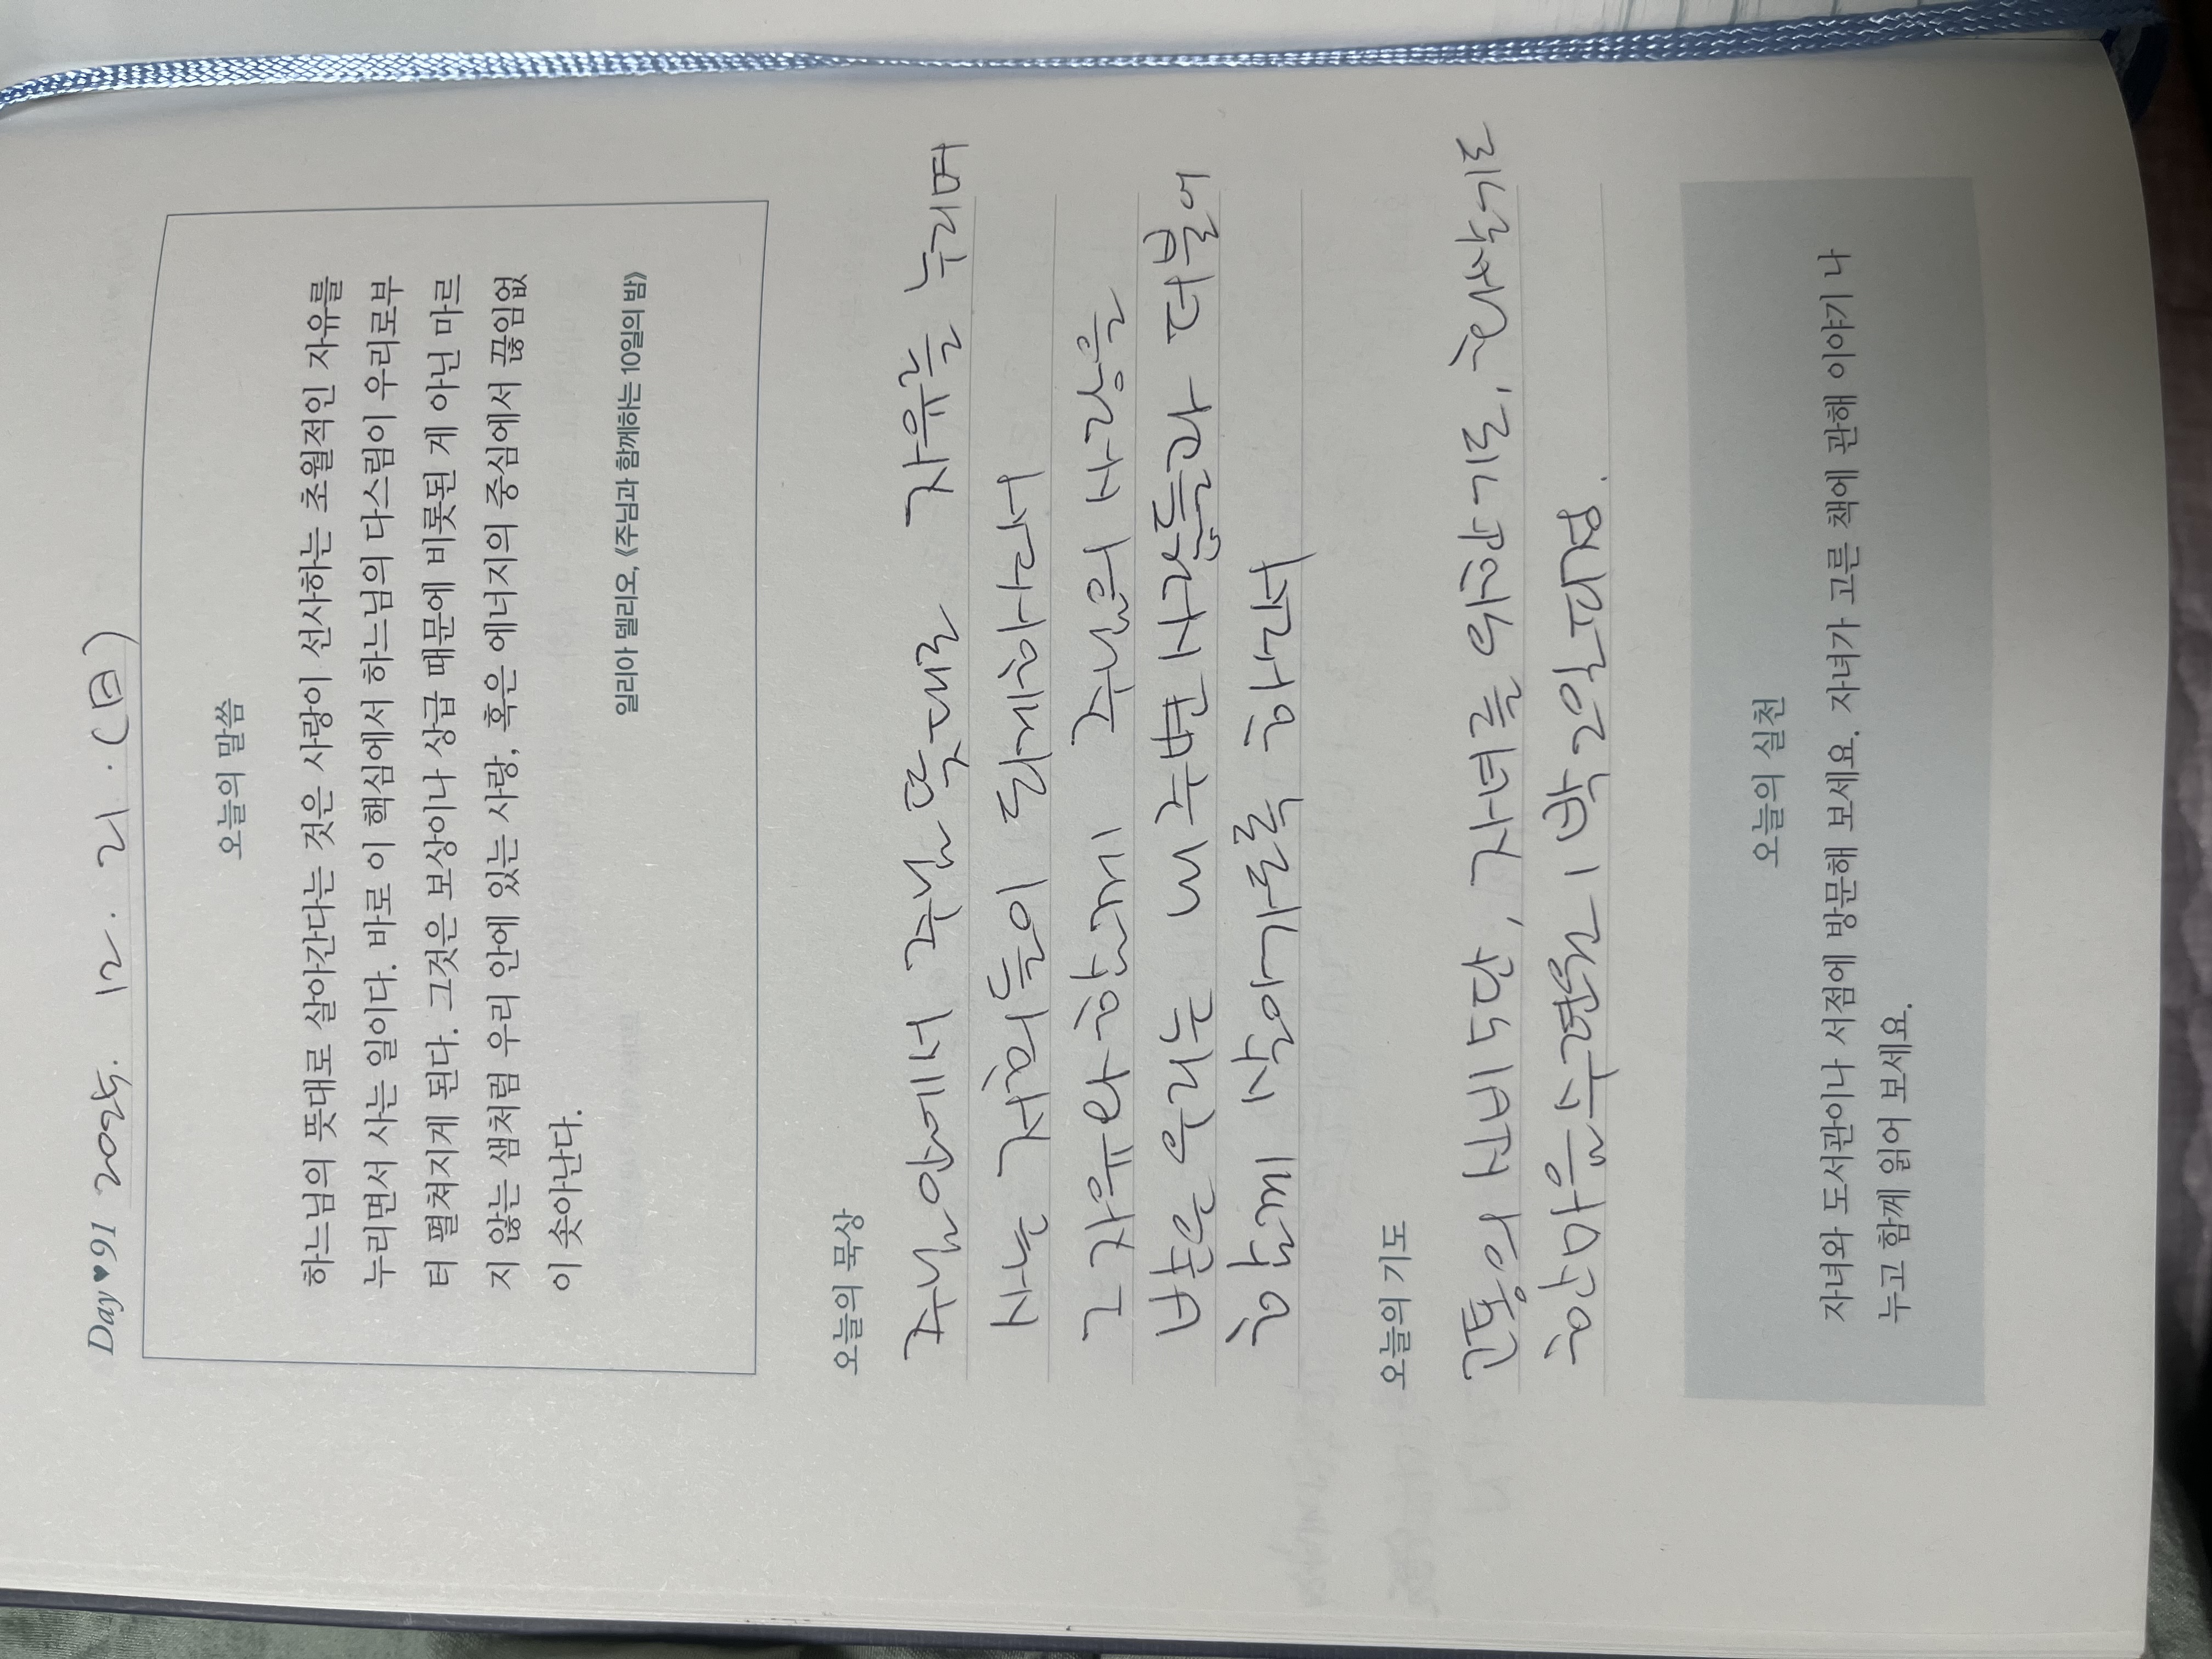 Day♥91 2025. 12. 21. (日)
오늘의 말씀
하느님의 뜻대로 살아간다는 것은 사랑이 선사하는 초월적인 자유를
누리면서 사는 일이다. 바로 이 핵심에서 하느님의 다스림이 우리로부
터 펼쳐지게 된다. 그것은 보상이나 상급 때문에 비롯된 게 아닌 마르
지 않는 샘처럼 우리 안에 있는 사랑, 혹은 에너지의 중심에서 끊임없
이 솟아난다.
일리아 델리오, 《주님과 함께하는 10일의 밤》
오늘의 묵상
주님 안에서 주님 뜻대로 자유를 누리며
사는 저희들이 되게하소서
그 자유와 함께 주님의 사랑을
받은 우리는 내 주변 사람들과 더불어
함께 살아가도록 하소서
오늘의 기도
고통의 신비 5단, 자녀를 위한 기도,
한마음수련원 1박 2일 피정.
오늘의 실천
자녀와 도서관이나 서점에 방문해 보세요. 자녀가 고른 책에 관해 이야기 나
누고 함께 읽어 보세요.